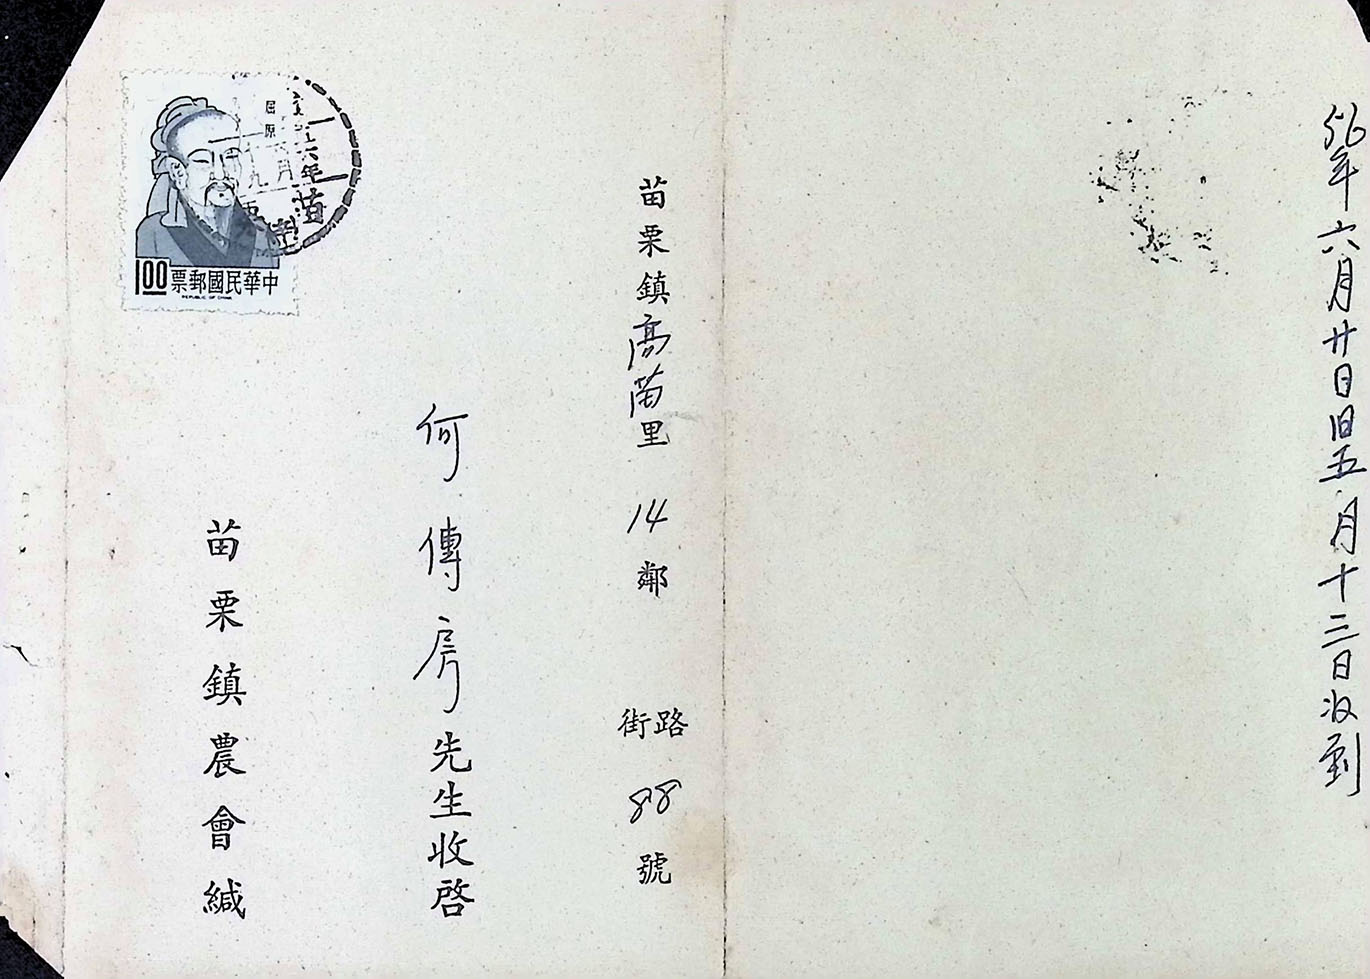 56年六月廿日旧五月十三日收到
苗栗鎮高苗里 14鄰 街路 88號
何傳房先生收啓
苗栗鎮農會緘
屈原
六年
六月
九
苗
1.00 票郵國民華中
REPUBLIC OF CHINA